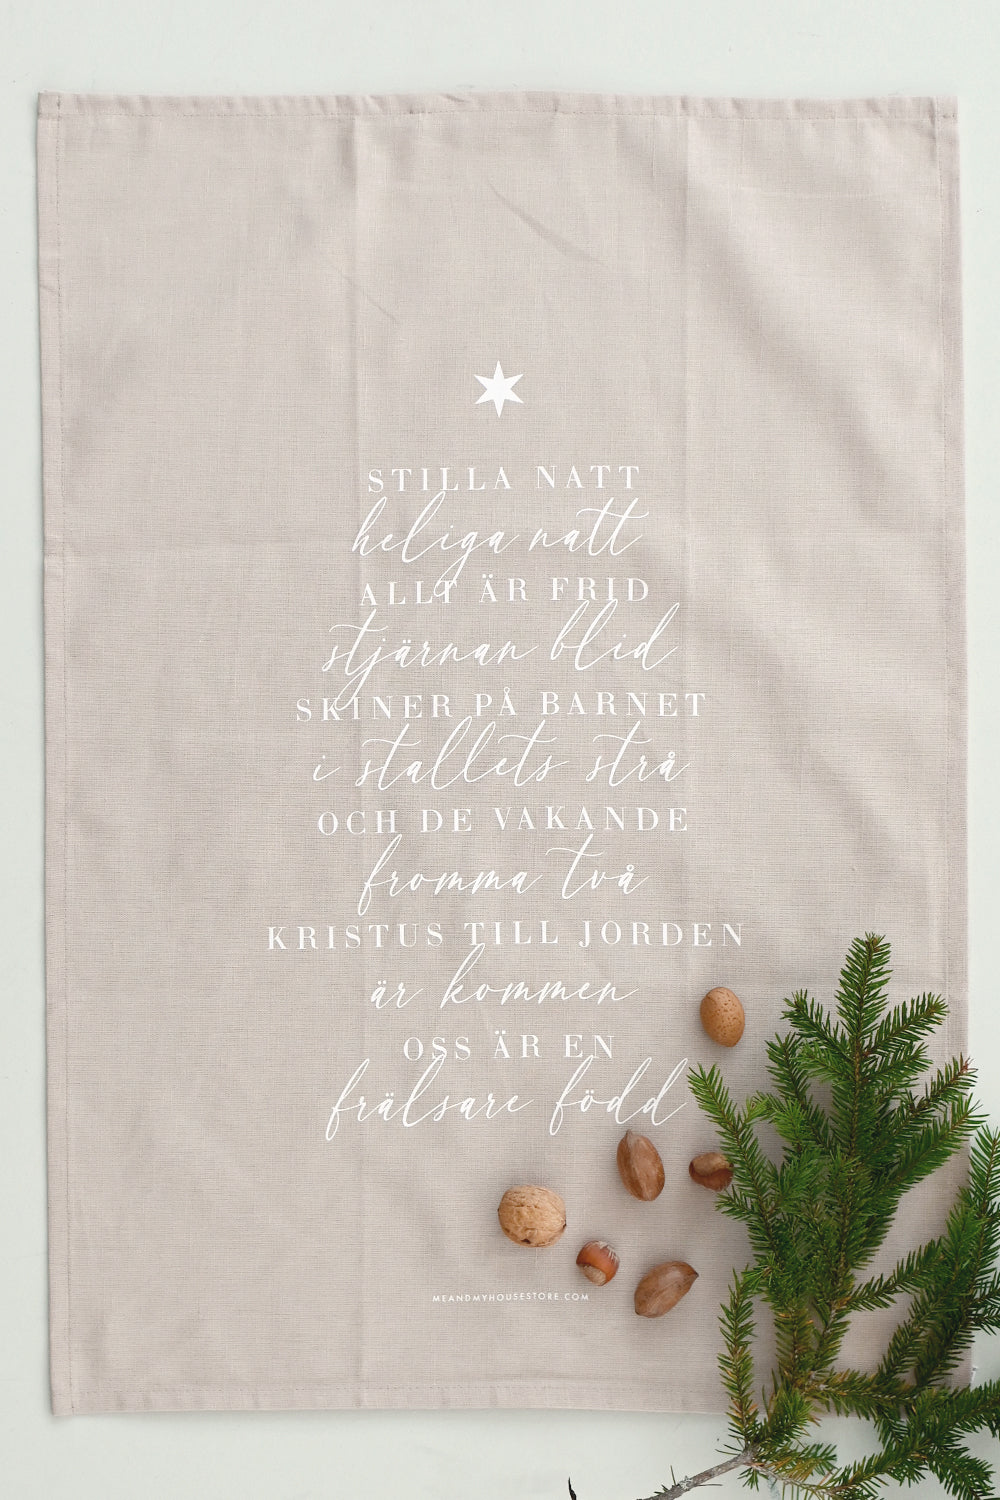 STILLA NATT
heliga natt
ALLT ÄR FRID
stjärnan blid
SKINER PÅ BARNET
i stallets strå
OCH DE VAKANDE
fromma två
KRISTUS TILL JORDEN
är kommen
OSS ÄR EN
frälsare född
MEANDMYHOUSESTORE.COM